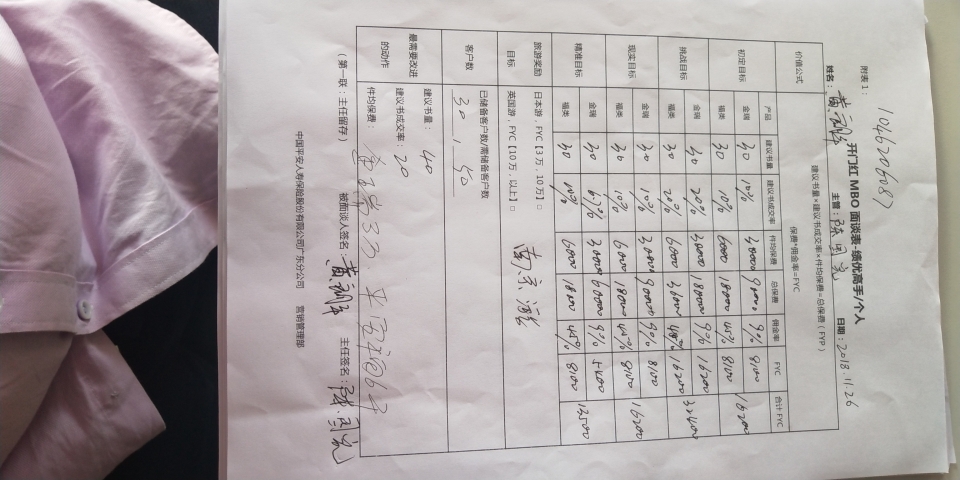 1046206087
附表1：
开门红 MBO 面谈表-绩优高手/个人
姓名： 主管： 日期：2018.11.26
价值公式 建议书量×建议书成交率×件均保费=总保费（FYP）
保费*佣金率=FYC
产品 建议书量 建议书成交率 件均保费 总保费 佣金率 FYC 合计FYC
初定目标 金瑞 30 10% 30000 90000 9% 8100 16200
福类 30 10% 6000 18000 45% 8100
挑战目标 金瑞 30 20% 30000 180000 9% 16200 32400
福类 30 20% 6000 36000 45% 16200
现实目标 金瑞 30 10% 30000 90000 9% 8100 16200
福类 30 10% 6000 18000 45% 8100
精准目标 金瑞 30 30000 60000 9% 5400 13500
福类 30 10% 6000 18000 45% 8100
旅游奖励目标 日本游，FYC【3万，10万】□
英国游，FYC【10万，以上】□
南京游
客户数 已储备客户数/需储备客户数
30 / 50
最需要改进的动作 建议书量：40
建议书成交率：20
件均保费：
（第一联：主任留存） 被面谈人签名： 主任签名：
中国平安人寿保险股份有限公司广东分公司 营销管理部